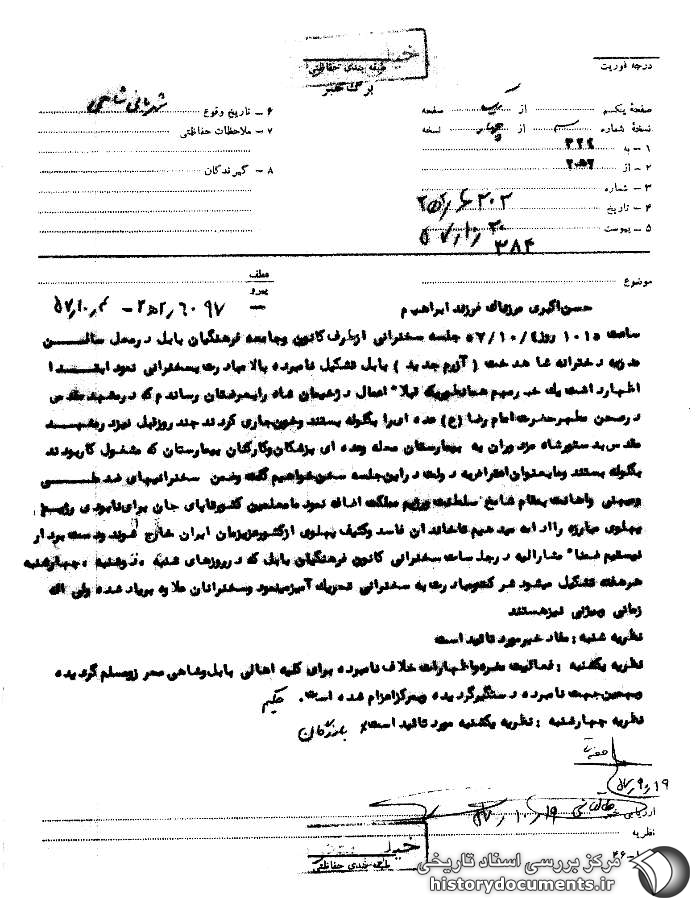 خیلی
طبقه بندی حفاظتی
برگ خبر
درجه فوریت
صفحهٔ یکم از یک صفحه
نسخهٔ شماره از چهار نسخه
۱ – به ۳۲۲
۲ – از
۳ – شماره
۴ – تاریخ
۵ – پیوست
۳۸۴
۶ – تاریخ وقوع
۷ – ملاحظات حفاظتی
۸ – گیرندگان
موضوع
عطف
پیرو
حسن اکبری مرزناک فرزند ابراهیم
ساعت روز ۵۷/۱۰/۴ جلسه سخنرانی ازطرف کانون وجامعه فرهنگیان بابل درمحل سالن
مدرسه دخترانه شاهدخت ( آزرم جدید ) بابل تشکیل نامبرده بالا مبادرت بسخنرانی نمود ابتدا
اظهارداشت یک خبر میدهم همانطوریکه قبلا" اعمال دژخیمان شاه رابعرضتان رساندم که درمشهد مقدس
درصحن مطهر حضرت امام رضا (ع) عده ای را بگلوله بستند وخون جاری کردند چند روز قبل نیز درمشهد
مقدس بدستور شاه مزدوران به بیمارستان حمله وعده ای پزشکان وکارکنان بیمارستان که مشغول کاربودند
بگلوله بستند ومابعنوان اعتراض به دولت دراین جلسه سخن خواهیم گفت وضمن سخنرانیهای ضد ملی
ومیهنی واهانت بمقام شامخ سلطنت ورژیم مملکت اضافه نمود مامعلمین کشورتاپای جان برای نابودی رژیم
پهلوی مبارزه را ادامه میدهیم تاخاندان فاسد وکثیف پهلوی ازکشورعزیزمان ایران خارج شوند ودست بردار
نیستیم ضمنا" مشارالیه درجلسات سخنرانی کانون فرهنگیان بابل که در روزهای شنبه ، دوشنبه ، چهارشنبه
هرهفته تشکیل میشود شرکت ومبادرت به سخنرانی تحریک آمیز مینمود وسخنرانان علاوه بریاد شده ولی اله
زمانی نیزهستند
نظریه شنبه : مفاد خبرمورد تائید است
نظریه یکشنبه : فعالیت مضره واظهارات خلاف نامبرده برای کلیه اهالی بابل وشاهی محرز ومسلم گردیده
وبهمین جهت نامبرده دستگیرگردیده وبمرکزاعزام شده است. حکیم
نظریه چهارشنبه : نظریه یکشنبه مورد تائید است. بازرگان
۵۷/۹/۱۹
۵۷/۱۰/۱۹
ارزیابی خبر
نظریه
خیلی
طبقه بندی حفاظتی
مرکز بررسی اسناد تاریخی
historydocuments.ir